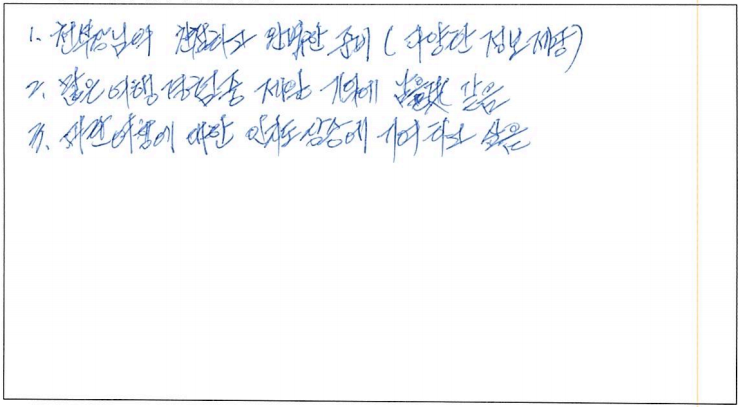 1. 천부장님의 친절하고 완벽한 준비 (다양한 정보제공)
2. 많은 여행 경험중 제일 기억에 남을것 같음
3. 여행에 대한 인지도 상승에 기여 하고 싶음